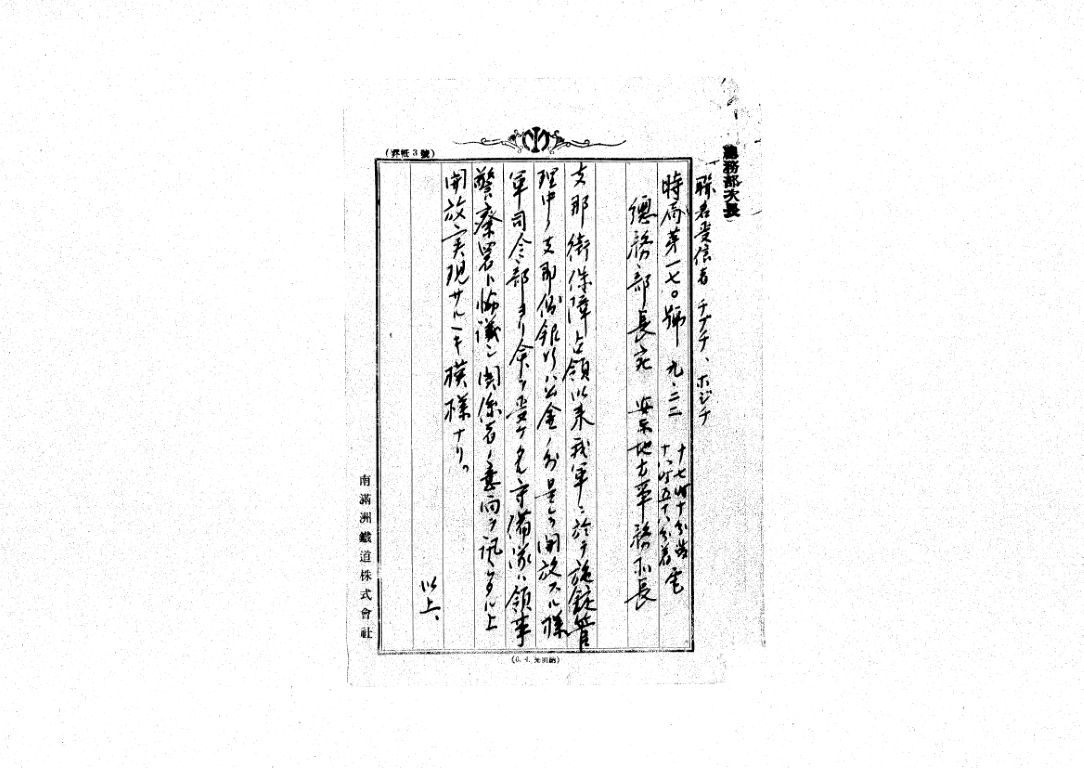 總務部次長
聯名受信者 チブチ、ホジチ
時局第一七〇號 九、二二 十七時十分発 十八時五十八分着 電
總務部長宛 安東地方事務所長
支那街保障占領以来我軍ニ於テ施錠管
理中ノ支那側銀行ハ公金ノ外是ヲ開放スル様
軍司令部ヨリ命ヲ受ケタル守備隊ハ領事
警察署ト協議シ関係者ノ意向ヲ訊シタル上
開放実現サルベキ模様ナリ。
以上、
(罫紙3號)
南滿洲鐵道株式會社